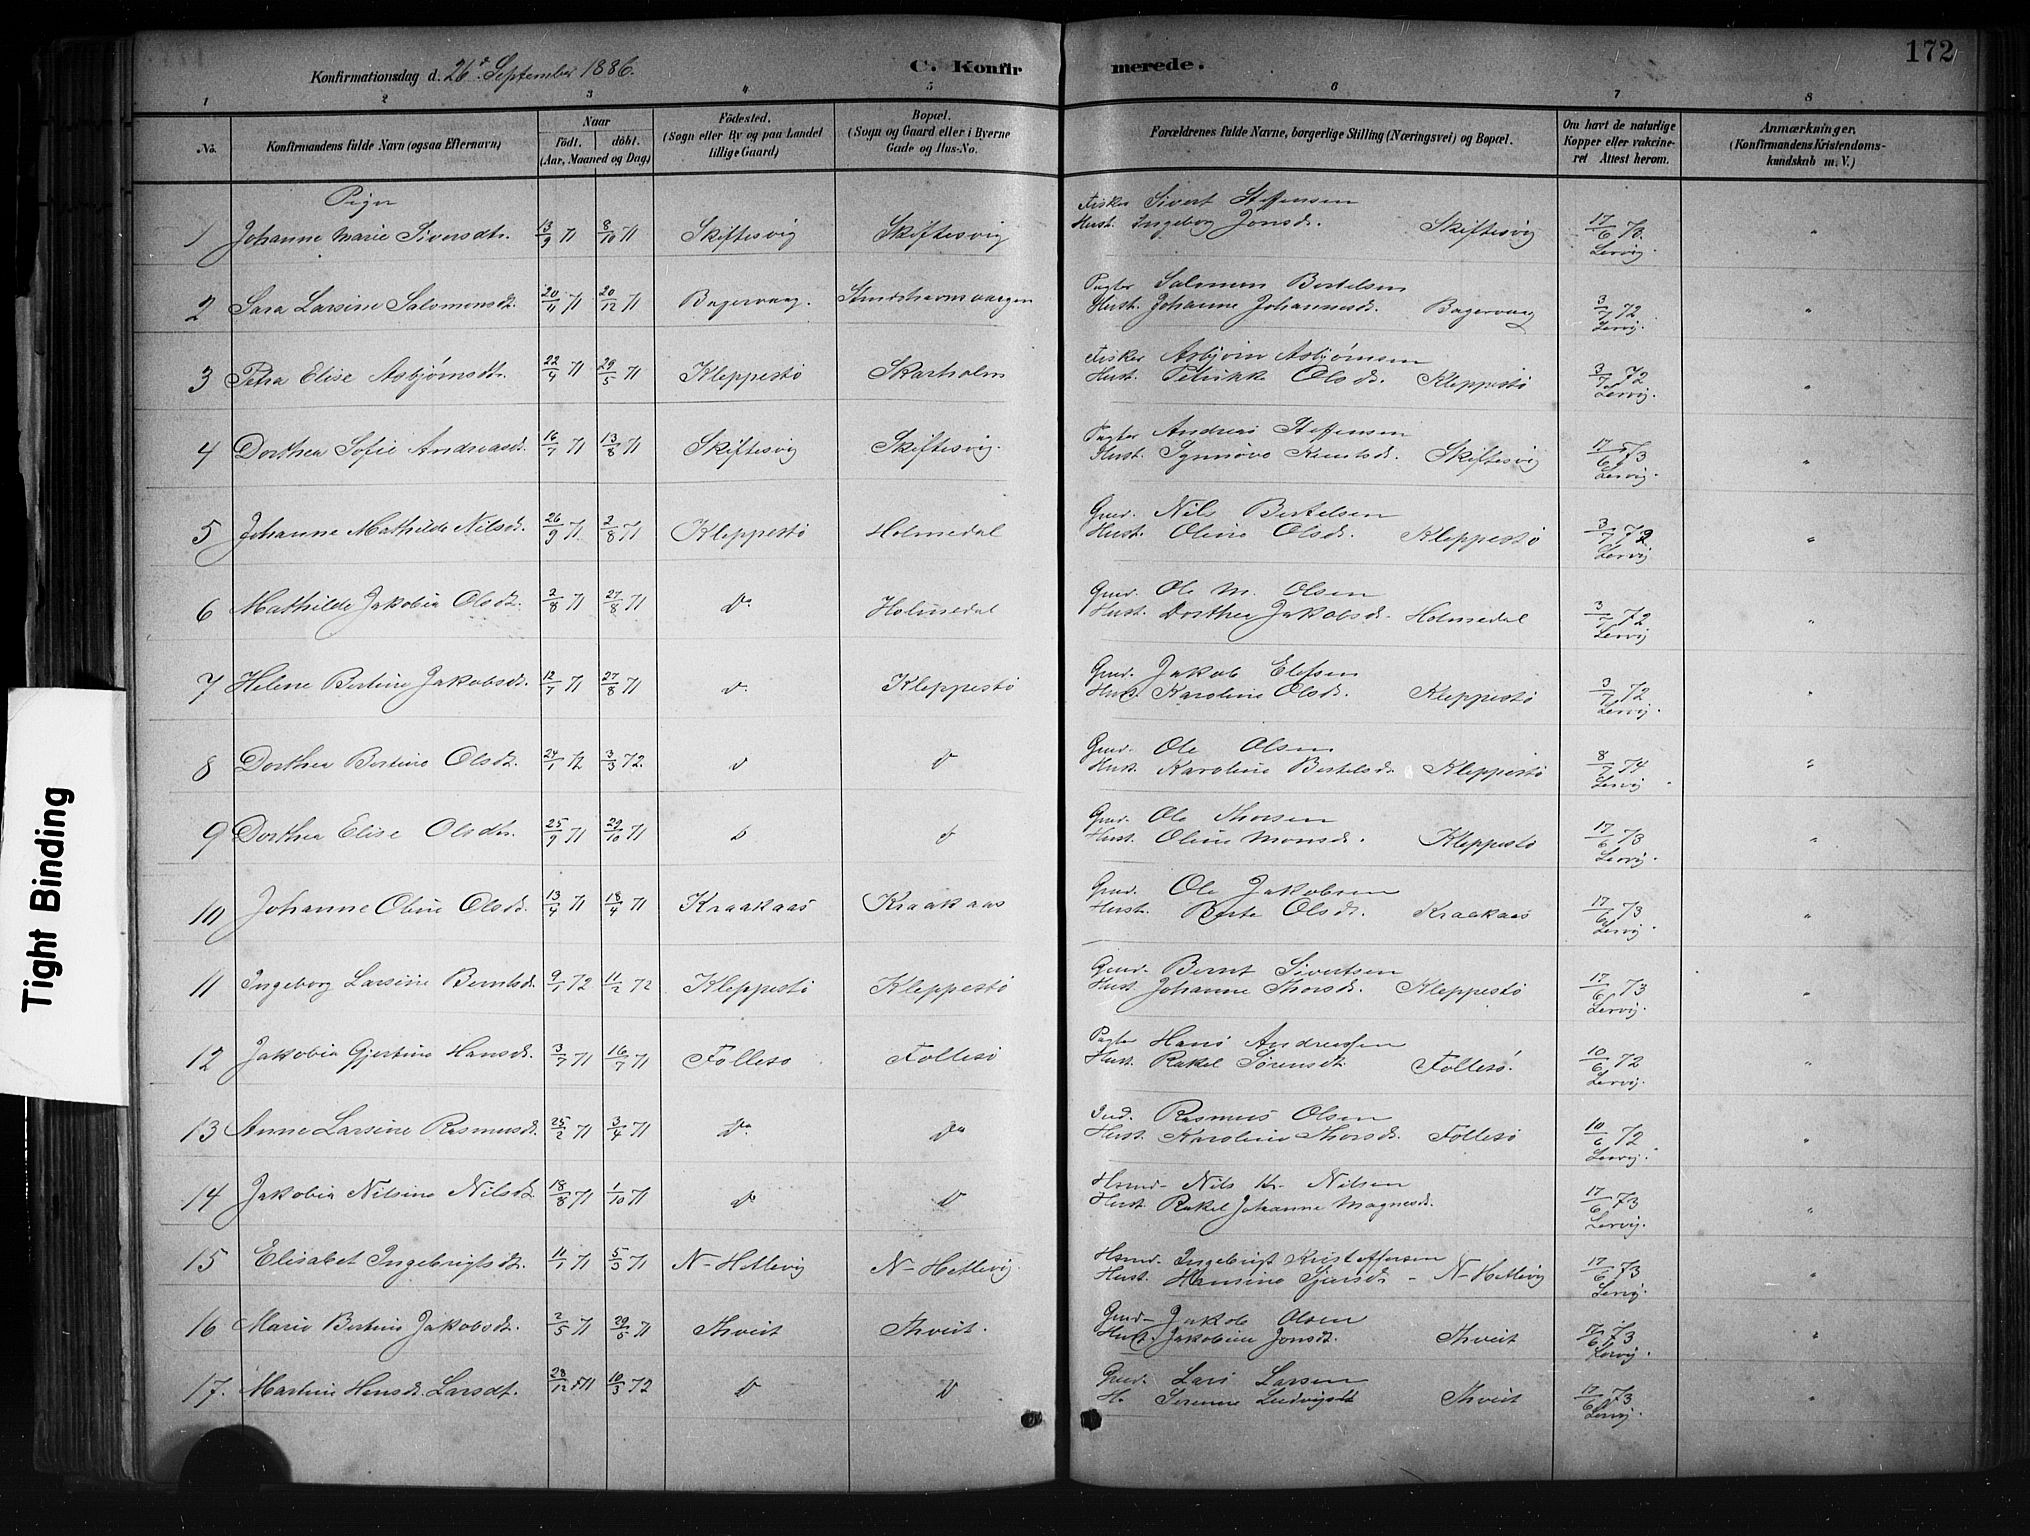 172
Konfirmationsdag d. 26de September 1886.
C. Konfirmerede.
1 2 3 4 5 6 7 8
No.
Konfirmandens fulde Navn (ogsaa Efternavn)
Naar
født. døbt.
(Aar, Maaned og Dag)
Fødested.
(Sogn eller By og paa Landet
tillige Gaard)
Bopæl.
(Sogn og Gaard eller i Byerne
Gade og Hus-No.
Forældrenes fulde Navne, borgerlige Stilling (Næringsvei) og Bopæl.
Om havt de naturlige
Kopper eller vakcine-
ret Attest herom.
Anmærkninger.
(Konfirmandens Kristendoms-
kundskab m. V.)
Piger
Fisker Sivert Steffensen
1 Johanne Marie Siversdtr. 13/9 71 8/10 71 Skiftesvig Skiftesvig Hust. Ingeborg Jonsd. Skiftesvig 17/6 73.
Lervig.
Pagter Salomon Bertelsen
2 Sara Larsine Salomonsdt. 20/11 71 20/12 71 Bagervaag. Hust. Johanne Johannesd. Bagervaag 3/7 72
Lervig.
Fisker Asbjörn Asbjörnsen
3 Petra Elise Asbjörnsdt. 22/4 71 29/5 71 Kleppestö Skarholm Hust. Petrikke Olsdt. Kleppestö 3/7 72
Lervig.
Pagter Andreas Steffensen
4 Dorthea Sofie Andreasd. 16/7 71 13/8 71 Skiftesvig Skiftesvig. Hust. Synnöve Knutsd. Skiftesvig 17/6 73
Lervig.
Gmd. Nils Bertelsen
5 Johanne Mathilde Nilsd. 26/9 71 2/8 71 Kleppestö Holmedal Hust. Oline Olsdt. Kleppestö 3/7 72
Lervig
Gmd. Ole M. Olsen
6 Mathilde Jakobia Olsdt. 2/8 71 27/8 71 Do Holmedal Hust. Dorthea Jakobsd. Holmedal 3/7 72
Lervig
Gmd. Jakob Elefsen
7 Helene Bertine Jakobsd. 12/7 71 27/8 71 D. Kleppestö Hust. Karoline Olsdt. Kleppestö 3/7 72
Lervig.
Gmd. Ole Olsen
8 Dorthea Bertine Olsdt. 24/1 72 3/3 72. D D Hust. Karoline Bertelsd. Kleppestö 8/7 74
Lervig
Gmd. Ole Thorsen
9 Dorthea Elise Olsdtr. 25/9 71 29/10 71 D D Hust. Oline Monsd. Kleppestö 17/6 73
Lervig.
Gmd. Ole Jakobsen
10 Johanne Oline Olsd. 13/4 71 18/4 71 Kraakaas Kraakaas Hust. Berte Olsdt. Kraakaas 17/6 73
Lervig.
Gmd. Bernt Sivertsen
11 Ingeborg Larsine Berntsd. 9/1 72 11/2 72 Kleppestö Kleppestö Hust. Johanne Thorsd. Kleppestö 17/6 73
Lervig.
Pagter Hans Andreassen
12 Jakobia Gjertine Hansd. 3/7 71 16/7 71 Follesö Follesö Hust. Rakel Sörensdt. Follesö. 10/6 72
Lervig.
Ind. Rasmus Olsen
13 Anne Larsine Rasmusd. 25/2 71 3/4 71 Do Do Hust. Karoline Thorsd. Follesö 10/6 72
Lervig.
Hsmd. Nils Kr. Nilsen
14 Jakobia Nilsine Nilsdt. 18/8 71 1/10 71 Do D Hust. Rakel Johanne Magnesd. 17/6 73
Lervig.
Hsmd. Ingebrigt Kristoffersen
15 Elisabet Ingebrigtsdt. 11/1 71 5/3 71 N-Hetlevig N-Hetlevig. Hust. N-Hetlevig 17/6 73
Lervig.
Gmd. Jakob Olsen
16 Marie Bertine Jakobsdt. 2/5 71 29/5 71 Thveit Thveit. Hust. Jakobine Jonsdt. Thveit 17/6 73
Lervig.
Gmd. Lars Larsen
17. Martine Larsdt. 28/12 71 10/3 72 D D H. Serenne Ludvigsdt Thveit 17/6 73
Lervig
Tight Binding